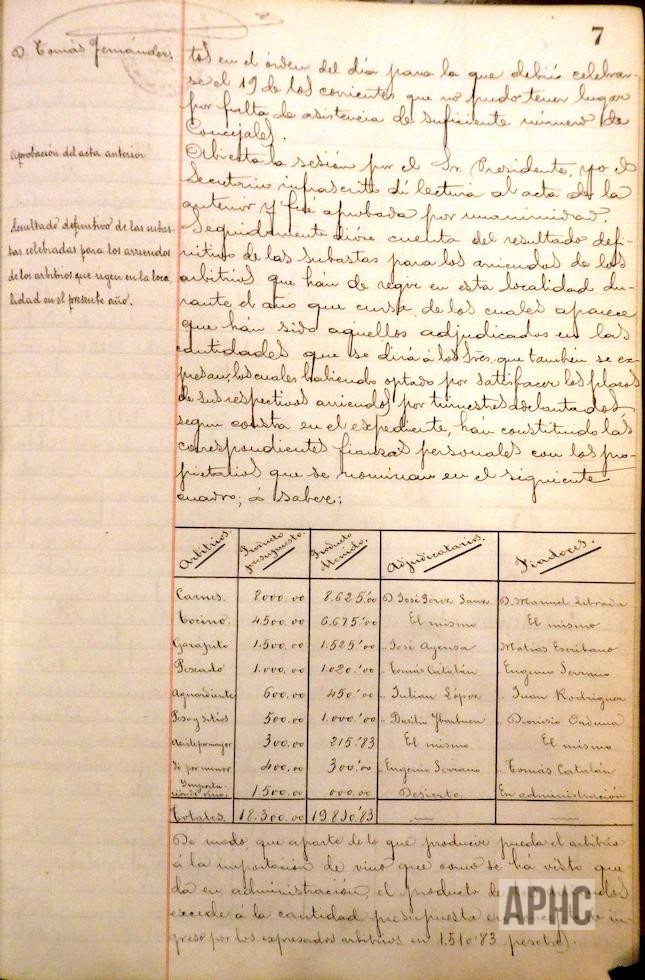 7
D. Tomás Fernández.
tos en el órden del dia para la que debió celebrar-
se el 19 de los corrientes que no pudo tener lugar
por falta de asistencia de suficiente número de
Concejales.
Aprobación del acta anterior
Abierta la sesión por el Sr. Presidente, yo el
Secretario infrascrito dí lectura al acta de la
anterior y fué aprobada por unanimidad.
Resultado definitivo de las subas-
tas celebradas para los arriendos
de los arbitrios que rigen en la loca-
lidad en el presente año.
Seguidamente dióse cuenta del resultado defi-
nitivo de las subastas para los arriendos de los
arbitrios que hán de regir en esta localidad du-
rante el año que cursa, de los cuales aparece
que hán sido aquellos adjudicados en las
cantidades que se dirá á los Sres. que también se ex-
presan, los cuales habiendo optado por satisfacer los plazos
de sus respectivos arriendos por trimestres adelantados,
segun consta en el expediente, hán constituido las
correspondientes fianzas personales con los pro-
pietarios que se nominan en el siguiente
cuadro; á saber:
Arbitrios. Producto presupuesto. Producto obtenido. Adjudicatarios. Fiadores.
Carnes. 8000.00 8.625'00 D. José Sanz D. Manuel Librada
Tocino. 4500.00 6.675'00 El mismo El mismo
Garapito 1.500.00 1.525'00 " José Ayensa Matías Escribano
Pescado 1.000.00 1.020'00 " Tomás Catalán Eugenio Serrano
Aguardiente 600.00 450'00 " Julian López " Juan Rodriguez
Peso y sitios 500.00 1.000'00 " Basilio Ybarbuen " Dionisio Orduna
Aceite por mayor 300.00 215'83 El mismo El mismo
Id por menor 400.00 300'00 " Eugenio Serrano " Tomás Catalán
Importación vino. 1.500.00 000.00 Desierto. En administración
Totales. 18.300.00 19.810'83
De modo, que aparte de lo que producir pueda el arbitrio
á la importación de vino que como se há visto que
da en administración, el producto de
excede á la cantidad presupuesta in-
greso por los expresados arbitrios en 1.510'83 pesetas.
APHC